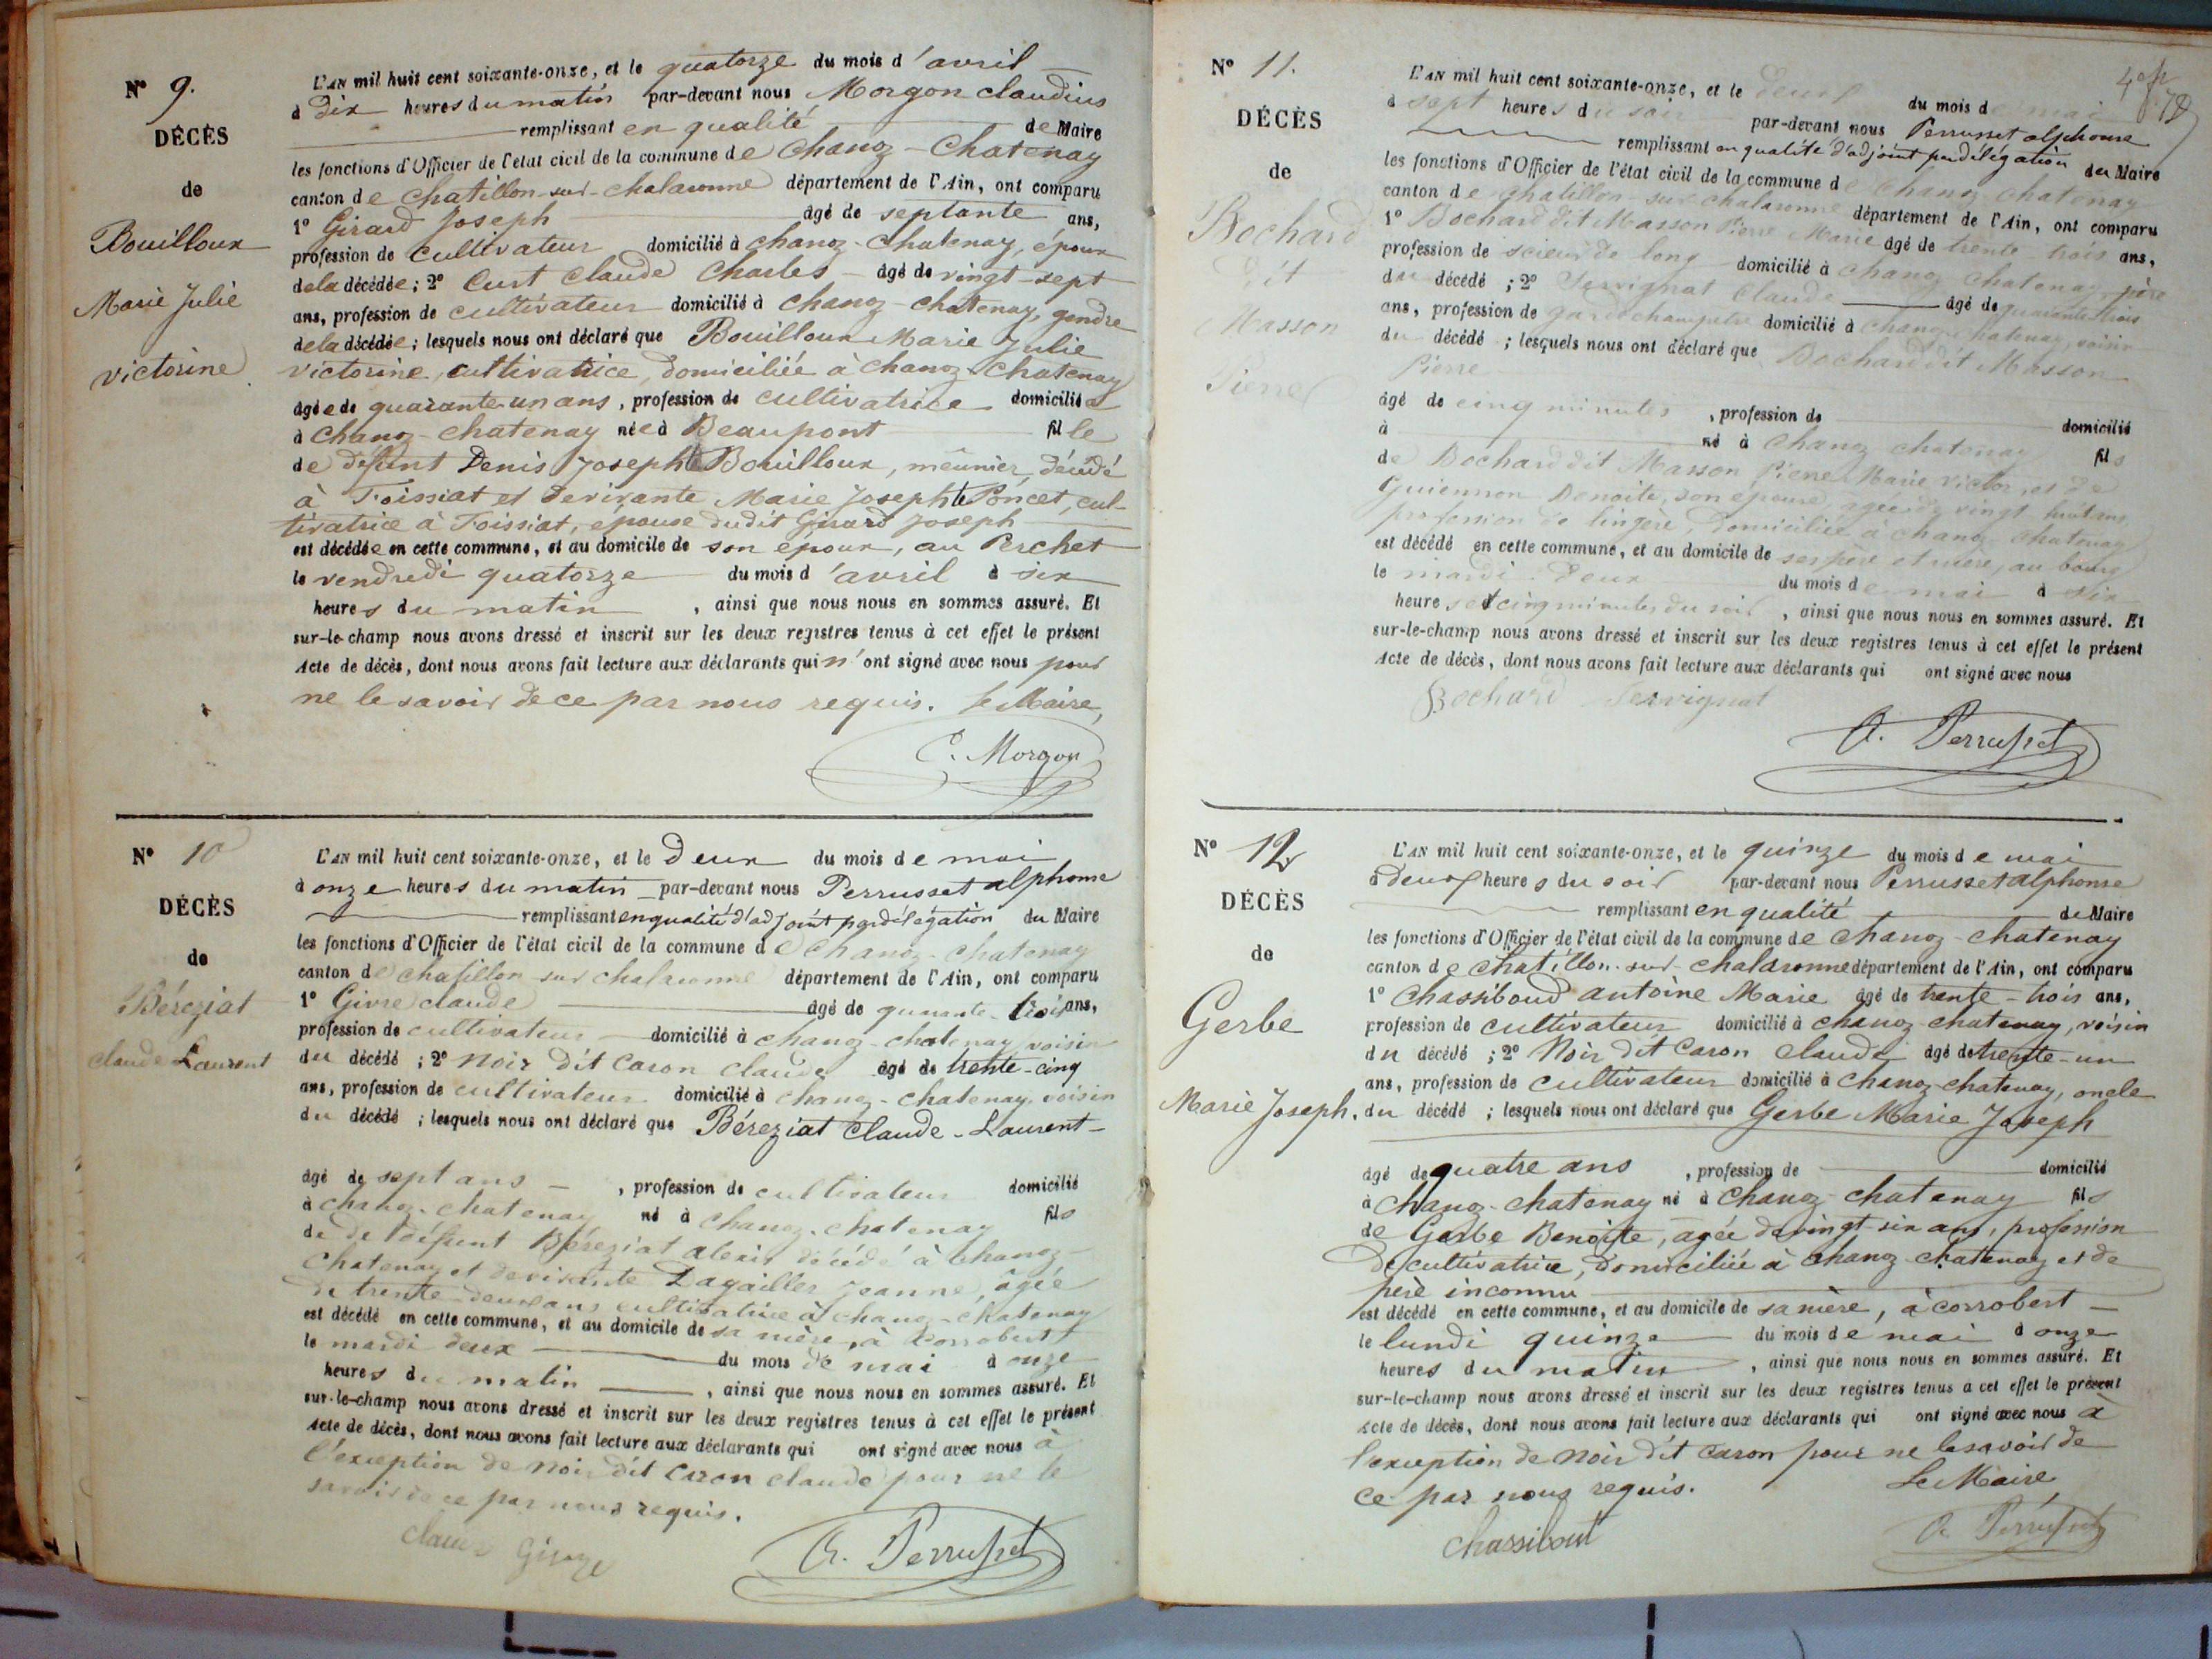 N° 9.
DÉCÈS
de
Bouilloux
Marie Julie
victorine
L'AN mil huit cent soixante-onze, et le quatorze du mois d'avril
à Dix heures du matin par-devant nous Morgon claudius
remplissant en qualité de Maire
les fonctions d'Officier de l'état civil de la commune de Chanoz-Chatenay
canton de Chatillon-sur-chalaronne département de l'Ain, ont comparu
1° Girard Joseph âgé de septante ans,
profession de cultivateur domicilié à chanoz-Chatenay, époux
de la décédée; 2° Curt Claude Charles âgé de vingt-sept
ans, profession de cultivateur domicilié à chanoz-chatenay, gendre
de la décédée; lesquels nous ont déclaré que Bouilloux Marie Julie
victorine, cultivatrice, domiciliée à chanoz-Chatenay
âgée de quarante un ans, profession de cultivatrice domicilié
à chanoz-chatenay née à Beaupont fille
de défunt Denis Joseph Bouilloux, meûnier, décédé
à Foissiat et de vivante Marie Josephte Poncet, cul-
tivatrice à Foissiat, épouse dudit Girard Joseph
est décédée en cette commune, et au domicile de son époux, au Perchet
le vendredi quatorze du mois d'avril à six
heures du matin, ainsi que nous nous en sommes assuré. Et
sur-le-champ nous avons dressé et inscrit sur les deux registres tenus à cet effet le présent
Acte de décès, dont nous avons fait lecture aux déclarants qui n'ont signé avec nous pour
ne le savoir de ce par nous requis. Le Maire,
C. Morgon
N° 10
DÉCÈS
de
Béreziat
claude Laurent
L'AN mil huit cent soixante-onze, et le Deux du mois de mai
à onze heures du matin par-devant nous Perrusset alphonse
remplissant en qualité d'adjoint par délégation du Maire
les fonctions d'Officier de l'état civil de la commune de Chanoz-Chatenay
canton de chatillon sur chalaronne département de l'Ain, ont comparu
1° Givre claude âgé de quarante-trois ans,
profession de cultivateur domicilié à chanoz-chatenay voisin
du décédé; 2° Noir dit Caron Claude âgé de trente-cinq
ans, profession de cultivateur domicilié à chanoz-chatenay, voisin
du décédé; lesquels nous ont déclaré que Béreziat Claude-Laurent-
âgé de sept ans, profession de cultivateur domicilié
à chanoz-chatenay né à chanoz-chatenay fils
de de défunt Béreziat alexis décédé à Chanoz-
Chatenay et de vivante Jeanne, âgée
de trente-deux ans cultivatrice à chanoz-chatenay
est décédé en cette commune, et au domicile de sa mère, à corrobert
le mardi deux du mois de mai à onze
heures du matin, ainsi que nous nous en sommes assuré. Et
sur-le-champ nous avons dressé et inscrit sur les deux registres tenus à cet effet le présent
Acte de décès, dont nous avons fait lecture aux déclarants qui ont signé avec nous à
l'exception de Noir dit Caron claude pour ne le
savoir de ce par nous requis.
A. Perrusset
N° 11.
DÉCÈS
de
Bochard
dit
Masson
Pierre
L'AN mil huit cent soixante-onze, et le deux du mois de mai
à sept heures du soir par-devant nous Perrusset alphonse
remplissant en qualité d'adjoint par délégation du Maire
les fonctions d'Officier de l'état civil de la commune de chanoz chatenay
canton de chatillon-sur chalaronne département de l'Ain, ont comparu
1° Bochard dit Masson Pierre Marie âgé de trente-trois ans,
profession de scieur de long domicilié à chanoz chatenay, père
du décédé; 2° Servignat Claude âgé de quarante trois
ans, profession de garde champêtre domicilié à chanoz-chatenay, voisin
du décédé; lesquels nous ont déclaré que Bochard dit Masson
Pierre
âgé de cinq minutes, profession de domicilié
à né à chanoz chatenay fils
de Bochard dit Masson Pierre Marie Victor, et de
Guiennon Benoite, son épouse, agée de vingt huit ans
profession de lingère, domiciliée à chanoz chatenay
est décédé en cette commune, et au domicile de ses père et mère, au bourg
le mardi deux du mois de mai à six
heures et cinq minutes du soir, ainsi que nous nous en sommes assuré. Et
sur-le-champ nous avons dressé et inscrit sur les deux registres tenus à cet effet le présent
Acte de décès, dont nous avons fait lecture aux déclarants qui ont signé avec nous
Bochard Servignat
A. Perrusset
N° 12
DÉCÈS
de
Gerbe
Marie Joseph.
L'AN mil huit cent soixante-onze, et le quinze du mois de mai
à deux heures du soir par-devant nous Perrusset alphonse
remplissant en qualité de Maire
les fonctions d'Officier de l'état civil de la commune de chanoz-chatenay
canton de chatillon-sur-chalaronne département de l'Ain, ont comparu
1° Chassiboud antoine Marie âgé de trente-trois ans,
profession de cultivateur domicilié à chanoz-chatenay, voisin
du décédé; 2° Noir dit Caron Claude âgé de trente-un
ans, profession de cultivateur domicilié à chanoz-chatenay, oncle
du décédé; lesquels nous ont déclaré que Gerbe Marie Joseph
âgé de quatre ans, profession de domicilié
à chanoz-chatenay né à chanoz-chatenay fils
de Gerbe Benoite, agée de vingt-six ans, profession
de cultivatrice, domiciliée à chanoz-chatenay et de
père inconnu
est décédé en cette commune, et au domicile de sa mère, à corrobert
le lundi quinze du mois de mai à onze
heures du matin, ainsi que nous nous en sommes assuré. Et
sur-le-champ nous avons dressé et inscrit sur les deux registres tenus à cet effet le présent
Acte de décès, dont nous avons fait lecture aux déclarants qui ont signé avec nous à
l'exception de Noir dit Caron pour ne le savoir de
ce par nous requis. Le Maire,
Chassibout A. Perrusset